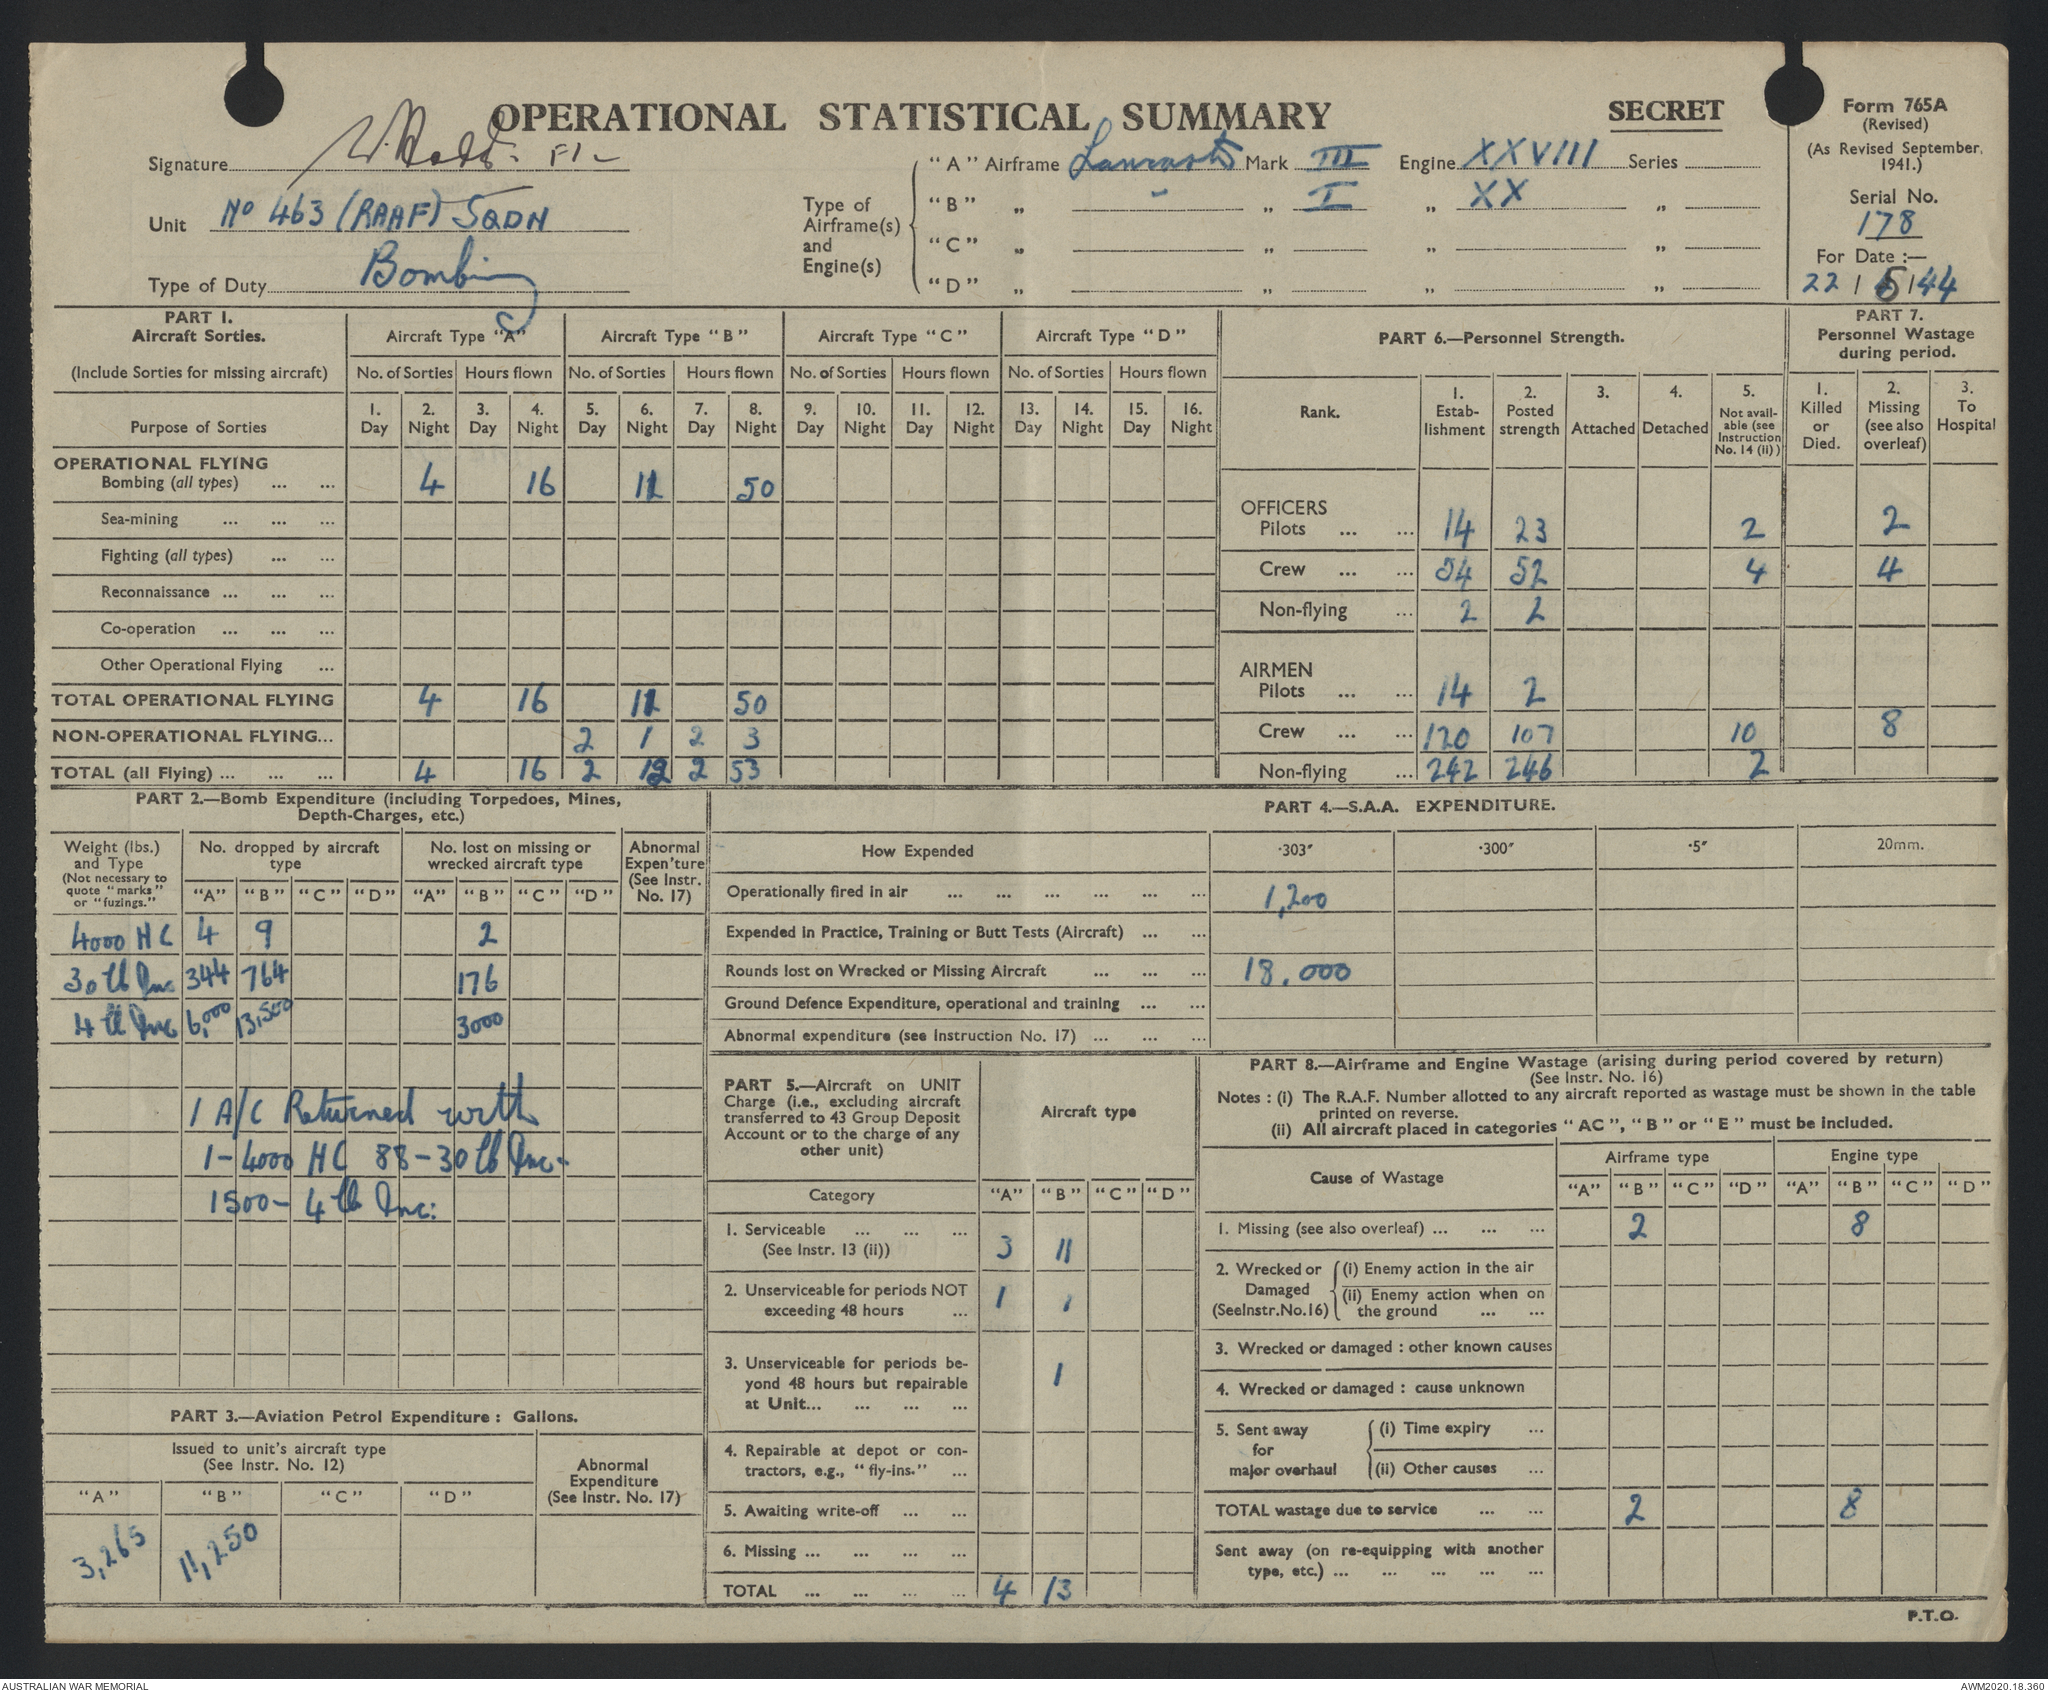 OPERATIONAL STATISTICAL SUMMARY
SECRET
Form 765A
(Revised)
(As Revised September, 1941.)
Serial No.
178
For Date :—
22 / 5 / 44
Signature
Unit No 463 (RAAF) SQDN
Type of Duty Bombing
Type of Airframe(s) and Engine(s)
"A" Airframe Lancaster Mark III Engine XXVIII Series
"B" „ " „ I „ XX „
"C" „ „ „ „
"D" „ „ „ „
PART 1.
Aircraft Sorties.
(Include Sorties for missing aircraft)
Purpose of Sorties
Aircraft Type "A" Aircraft Type "B" Aircraft Type "C" Aircraft Type "D"
No. of Sorties Hours flown No. of Sorties Hours flown No. of Sorties Hours flown No. of Sorties Hours flown
1. Day 2. Night 3. Day 4. Night 5. Day 6. Night 7. Day 8. Night 9. Day 10. Night 11. Day 12. Night 13. Day 14. Night 15. Day 16. Night
OPERATIONAL FLYING
Bombing (all types) ... ... 4 16 11 50
Sea-mining ... ... ...
Fighting (all types) ... ...
Reconnaissance ... ... ...
Co-operation ... ... ...
Other Operational Flying ...
TOTAL OPERATIONAL FLYING 4 16 11 50
NON-OPERATIONAL FLYING... 2 1 2 3
TOTAL (all Flying) ... ... ... 4 16 2 12 2 53
PART 6.—Personnel Strength.
Rank.
1. Estab-lishment
2. Posted strength
3. Attached
4. Detached
5. Not avail-able (see Instruction No. 14 (ii))
PART 7.
Personnel Wastage during period.
1. Killed or Died.
2. Missing (see also overleaf)
3. To Hospital
OFFICERS
Pilots ... ... 14 23 2 2
Crew ... ... 54 52 4 4
Non-flying ... 2 2
AIRMEN
Pilots ... ... 14 2
Crew ... ... 120 107 10 8
Non-flying ... 242 246 2
PART 2.—Bomb Expenditure (including Torpedoes, Mines,
Depth-Charges, etc.)
Weight (lbs.) and Type (Not necessary to quote "marks" or "fuzings."
No. dropped by aircraft type
No. lost on missing or wrecked aircraft type
Abnormal Expen'ture (See Instr. No. 17)
"A" "B" "C" "D" "A" "B" "C" "D"
4000 HC 4 9 2
30 lb Inc 344 764 176
4 lb Inc 6,000 13,500 3000
1 A/C Returned with
1 - 4000 HC 88 - 30 lb Inc.
1500 - 4 lb Inc:
PART 3.—Aviation Petrol Expenditure : Gallons.
Issued to unit's aircraft type
(See Instr. No. 12)
Abnormal Expenditure (See Instr. No. 17)
"A" "B" "C" "D"
3,265 11,250
PART 4.—S.A.A. EXPENDITURE.
How Expended ·303" ·300" ·5" 20mm.
Operationally fired in air ... ... ... ... ... ... 1,200
Expended in Practice, Training or Butt Tests (Aircraft) ... ...
Rounds lost on Wrecked or Missing Aircraft ... ... ... 18,000
Ground Defence Expenditure, operational and training ... ...
Abnormal expenditure (see Instruction No. 17) ... ... ...
PART 5.—Aircraft on UNIT
Charge (i.e., excluding aircraft
transferred to 43 Group Deposit
Account or to the charge of any
other unit)
Aircraft type
Category "A" "B" "C" "D"
1. Serviceable ... ... ...
(See Instr. 13 (ii)) 3 11
2. Unserviceable for periods NOT
exceeding 48 hours ... 1 1
3. Unserviceable for periods be-
yond 48 hours but repairable
at Unit... ... ... ... 1
4. Repairable at depot or con-
tractors, e.g., "fly-ins." ...
5. Awaiting write-off ... ...
6. Missing ... ... ... ...
TOTAL ... ... ... ... 4 13
PART 8.—Airframe and Engine Wastage (arising during period covered by return)
(See Instr. No. 16)
Notes : (i) The R.A.F. Number allotted to any aircraft reported as wastage must be shown in the table
printed on reverse.
(ii) All aircraft placed in categories "AC", "B" or "E" must be included.
Cause of Wastage
Airframe type Engine type
"A" "B" "C" "D" "A" "B" "C" "D"
1. Missing (see also overleaf) ... ... ... 2 8
2. Wrecked or Damaged (SeeInstr.No.16)
(i) Enemy action in the air
(ii) Enemy action when on
the ground ... ...
3. Wrecked or damaged : other known causes
4. Wrecked or damaged : cause unknown
5. Sent away for major overhaul
(i) Time expiry ...
(ii) Other causes ...
TOTAL wastage due to service ... ... 2 8
Sent away (on re-equipping with another
type, etc.) ... ... ... ... ...
P.T.O.
AUSTRALIAN WAR MEMORIAL
AWM2020.18.360